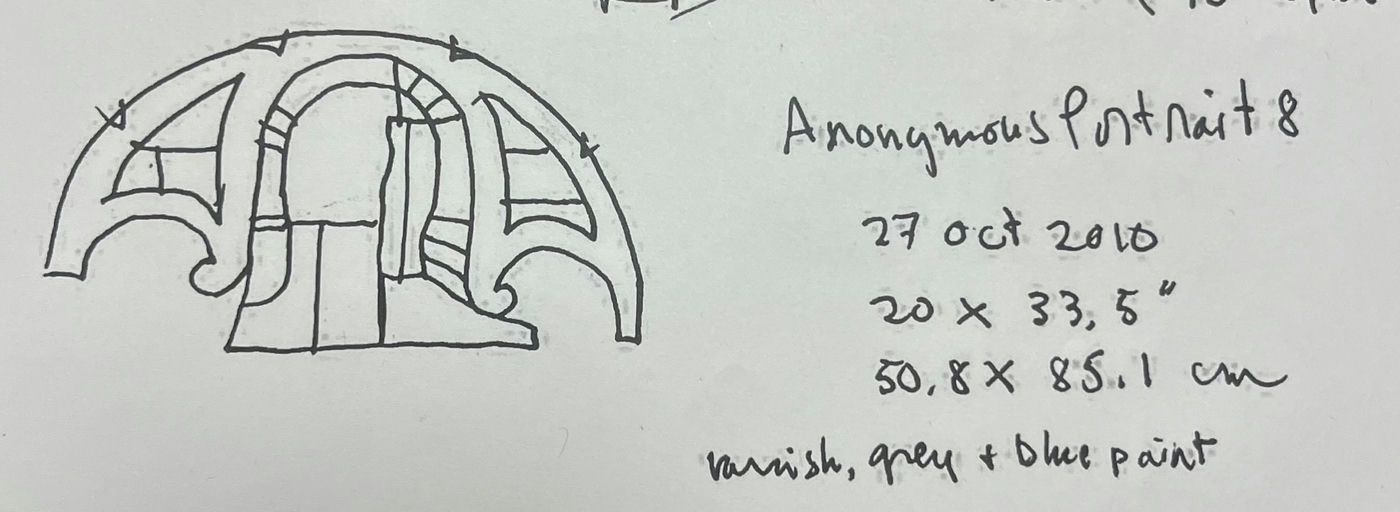 Anonymous Portrait 8
27 oct 2010
20 x 33,5"
50.8 x 85.1 cm
varnish, grey + blue paint